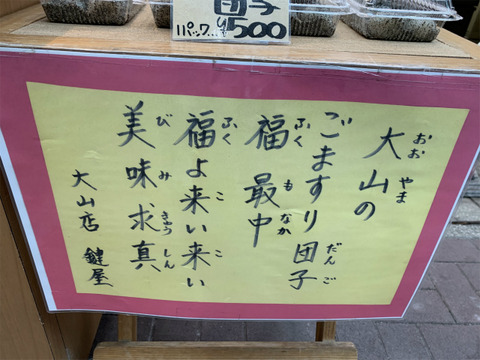 団子
1パック..¥500
大山の
おおやま
ごますり団子
だんご
福最中
ふくもなか
福よ来い来い
ふくこいこい
美味求真
びみきゅうしん
大山店 鍵屋